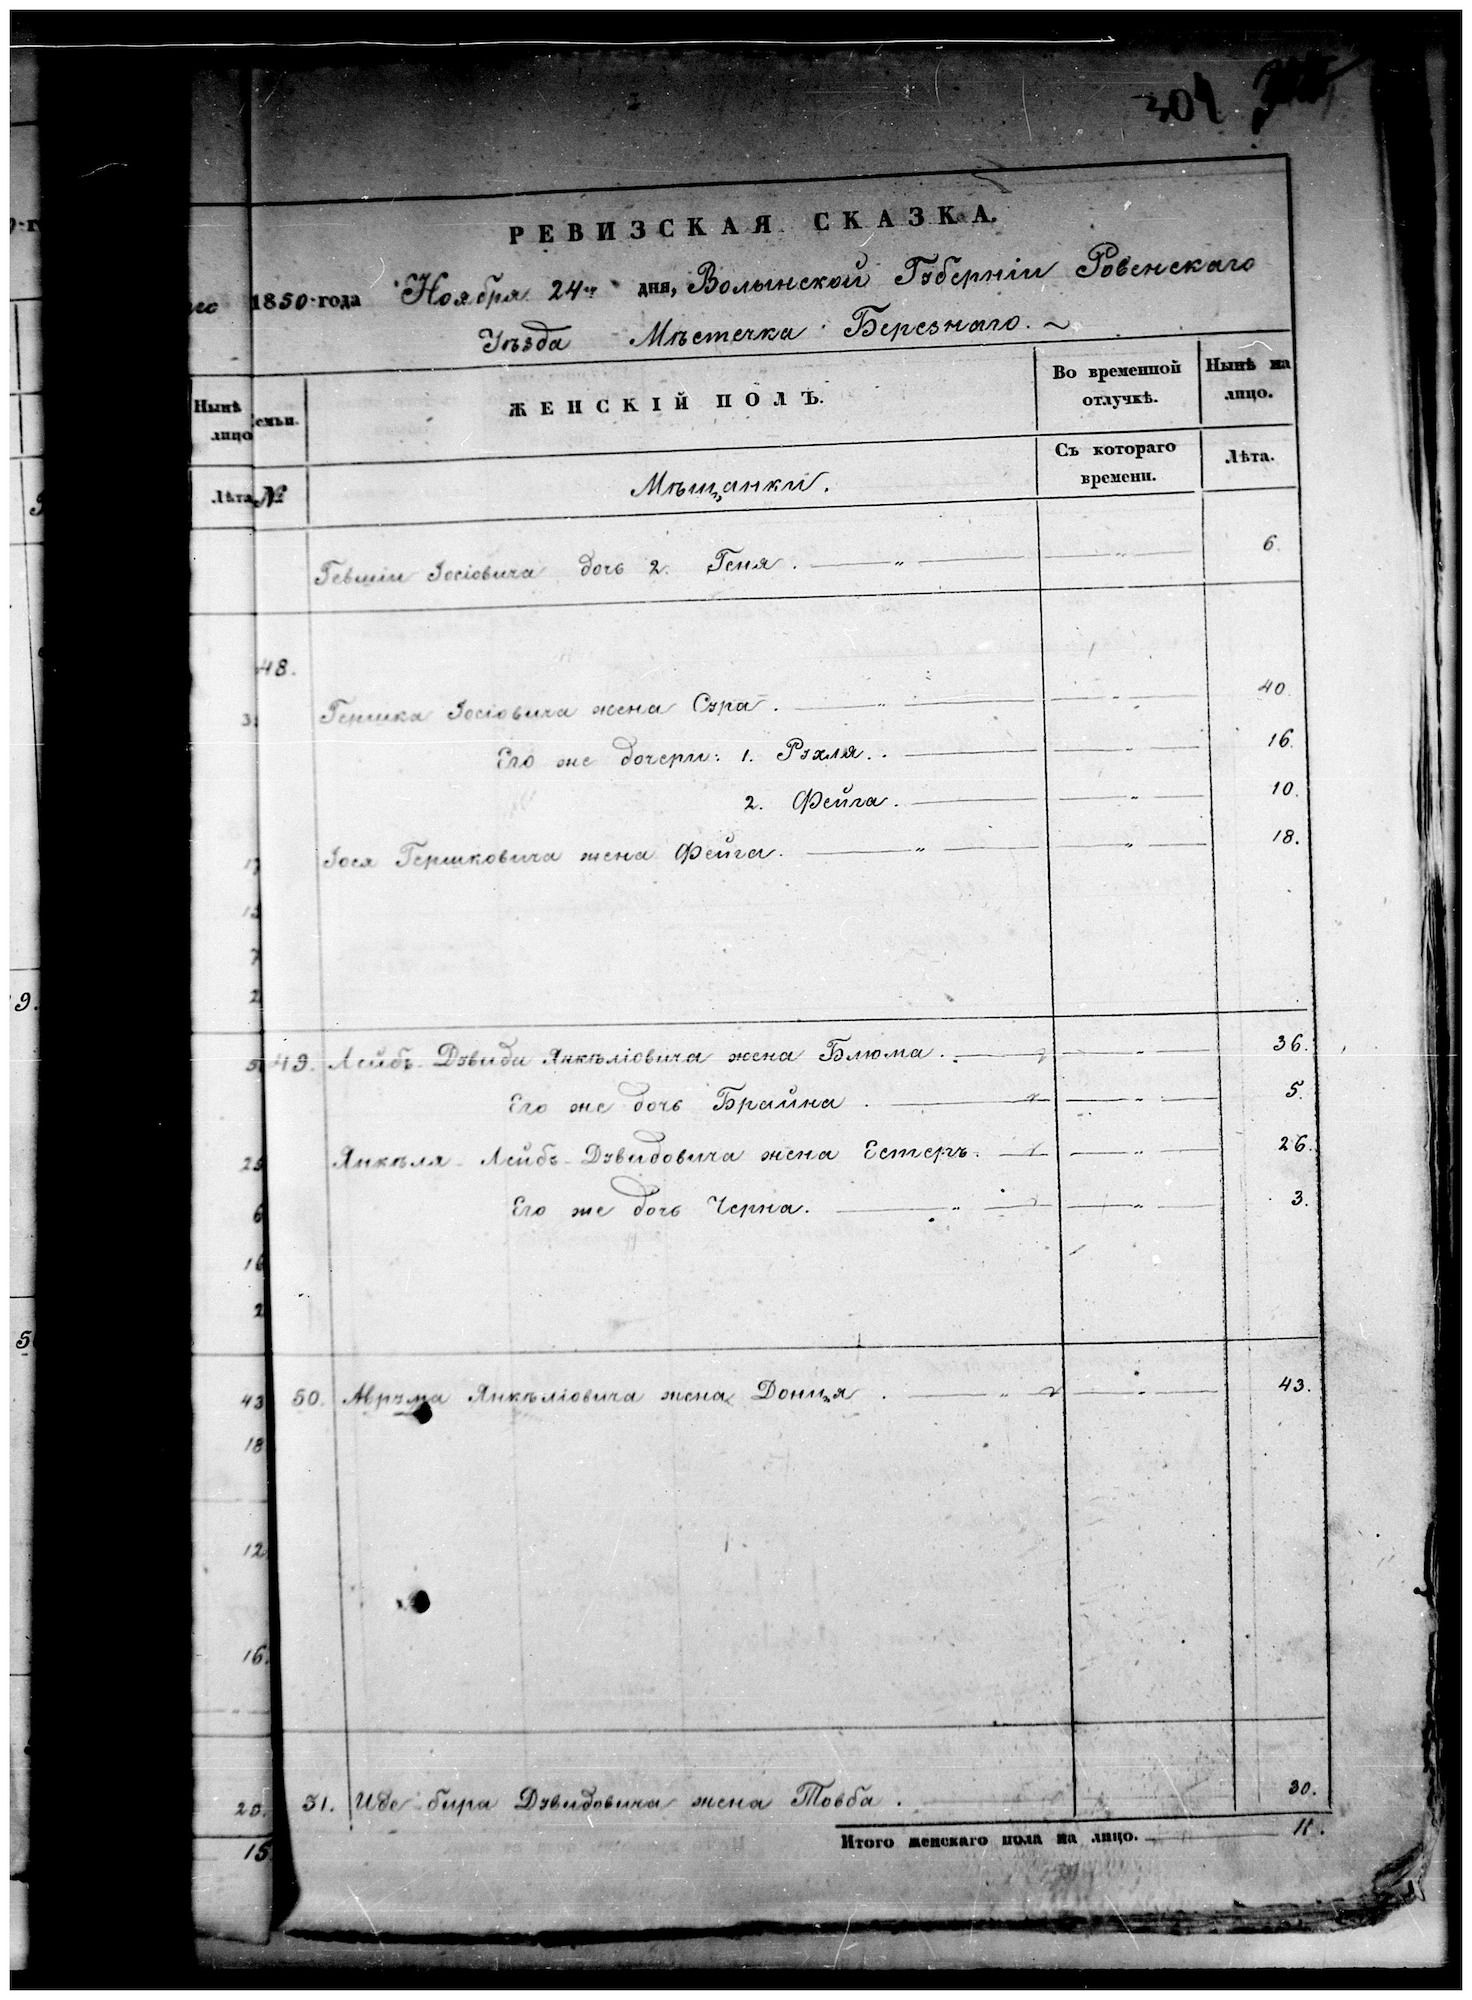 304
РЕВИЗСКАЯ СКАЗКА.
1850-года Ноября 24го дня, Волынской Губерніи Ровенскаго
Уѣзда Мѣстечка Березнаго. ~
Нынѣ лицо
семьи.
ЖЕНСКІЙ ПОЛЪ.
Во временной отлучкѣ.
Нынѣ на лицо.
Лѣта
№
Мѣщанки.
Съ котораго времени.
Лѣта.
Іосіовича дочь 2. Геня. — „ — 6.
48.
Гершка Іосіовича жена Сура. — „ — 40.
Его же дочери: 1. Рухля. — „ — 16.
2. Фейга. — „ — 10.
17 Іося Гершковича жена Фейга. — „ — 18.
7
2
49. Лейбъ-Дувида Янкѣліовича жена Блюма. — „ — 36.
Его же дочь Брайна — „ — 5.
25 Янкѣля Лейбъ-Дувидовича жена Естеръ. — „ — 26.
6 Его же дочь Черна. — „ — 3.
16
2
43 50. Аврума Янкѣліовича жена Доница. — „ — 43.
18
12
16.
20. 51. Дувидовича жена Товба. — 30.
Итого женскаго пола на лицо. — 11.
15
9.